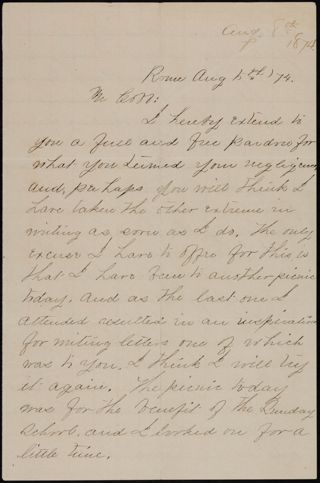 Aug 8th
1874
Rome Aug 8th, 74.
Mr Cobb:
I hereby extend to
you a full and free pardon for
what you termed your negligence
and, perhaps you will think I
have taken the other extreme in
writing as soon as I do. The only
excuse I have to offer for this is
that I have been to another picnic
today. and as the last one I
attended resulted in an inspiration
for writing letters one of which
was to you. I think I will try
it again. The picnic today
was for the benefit of the Sunday
Schools. and I looked on for a
little time.